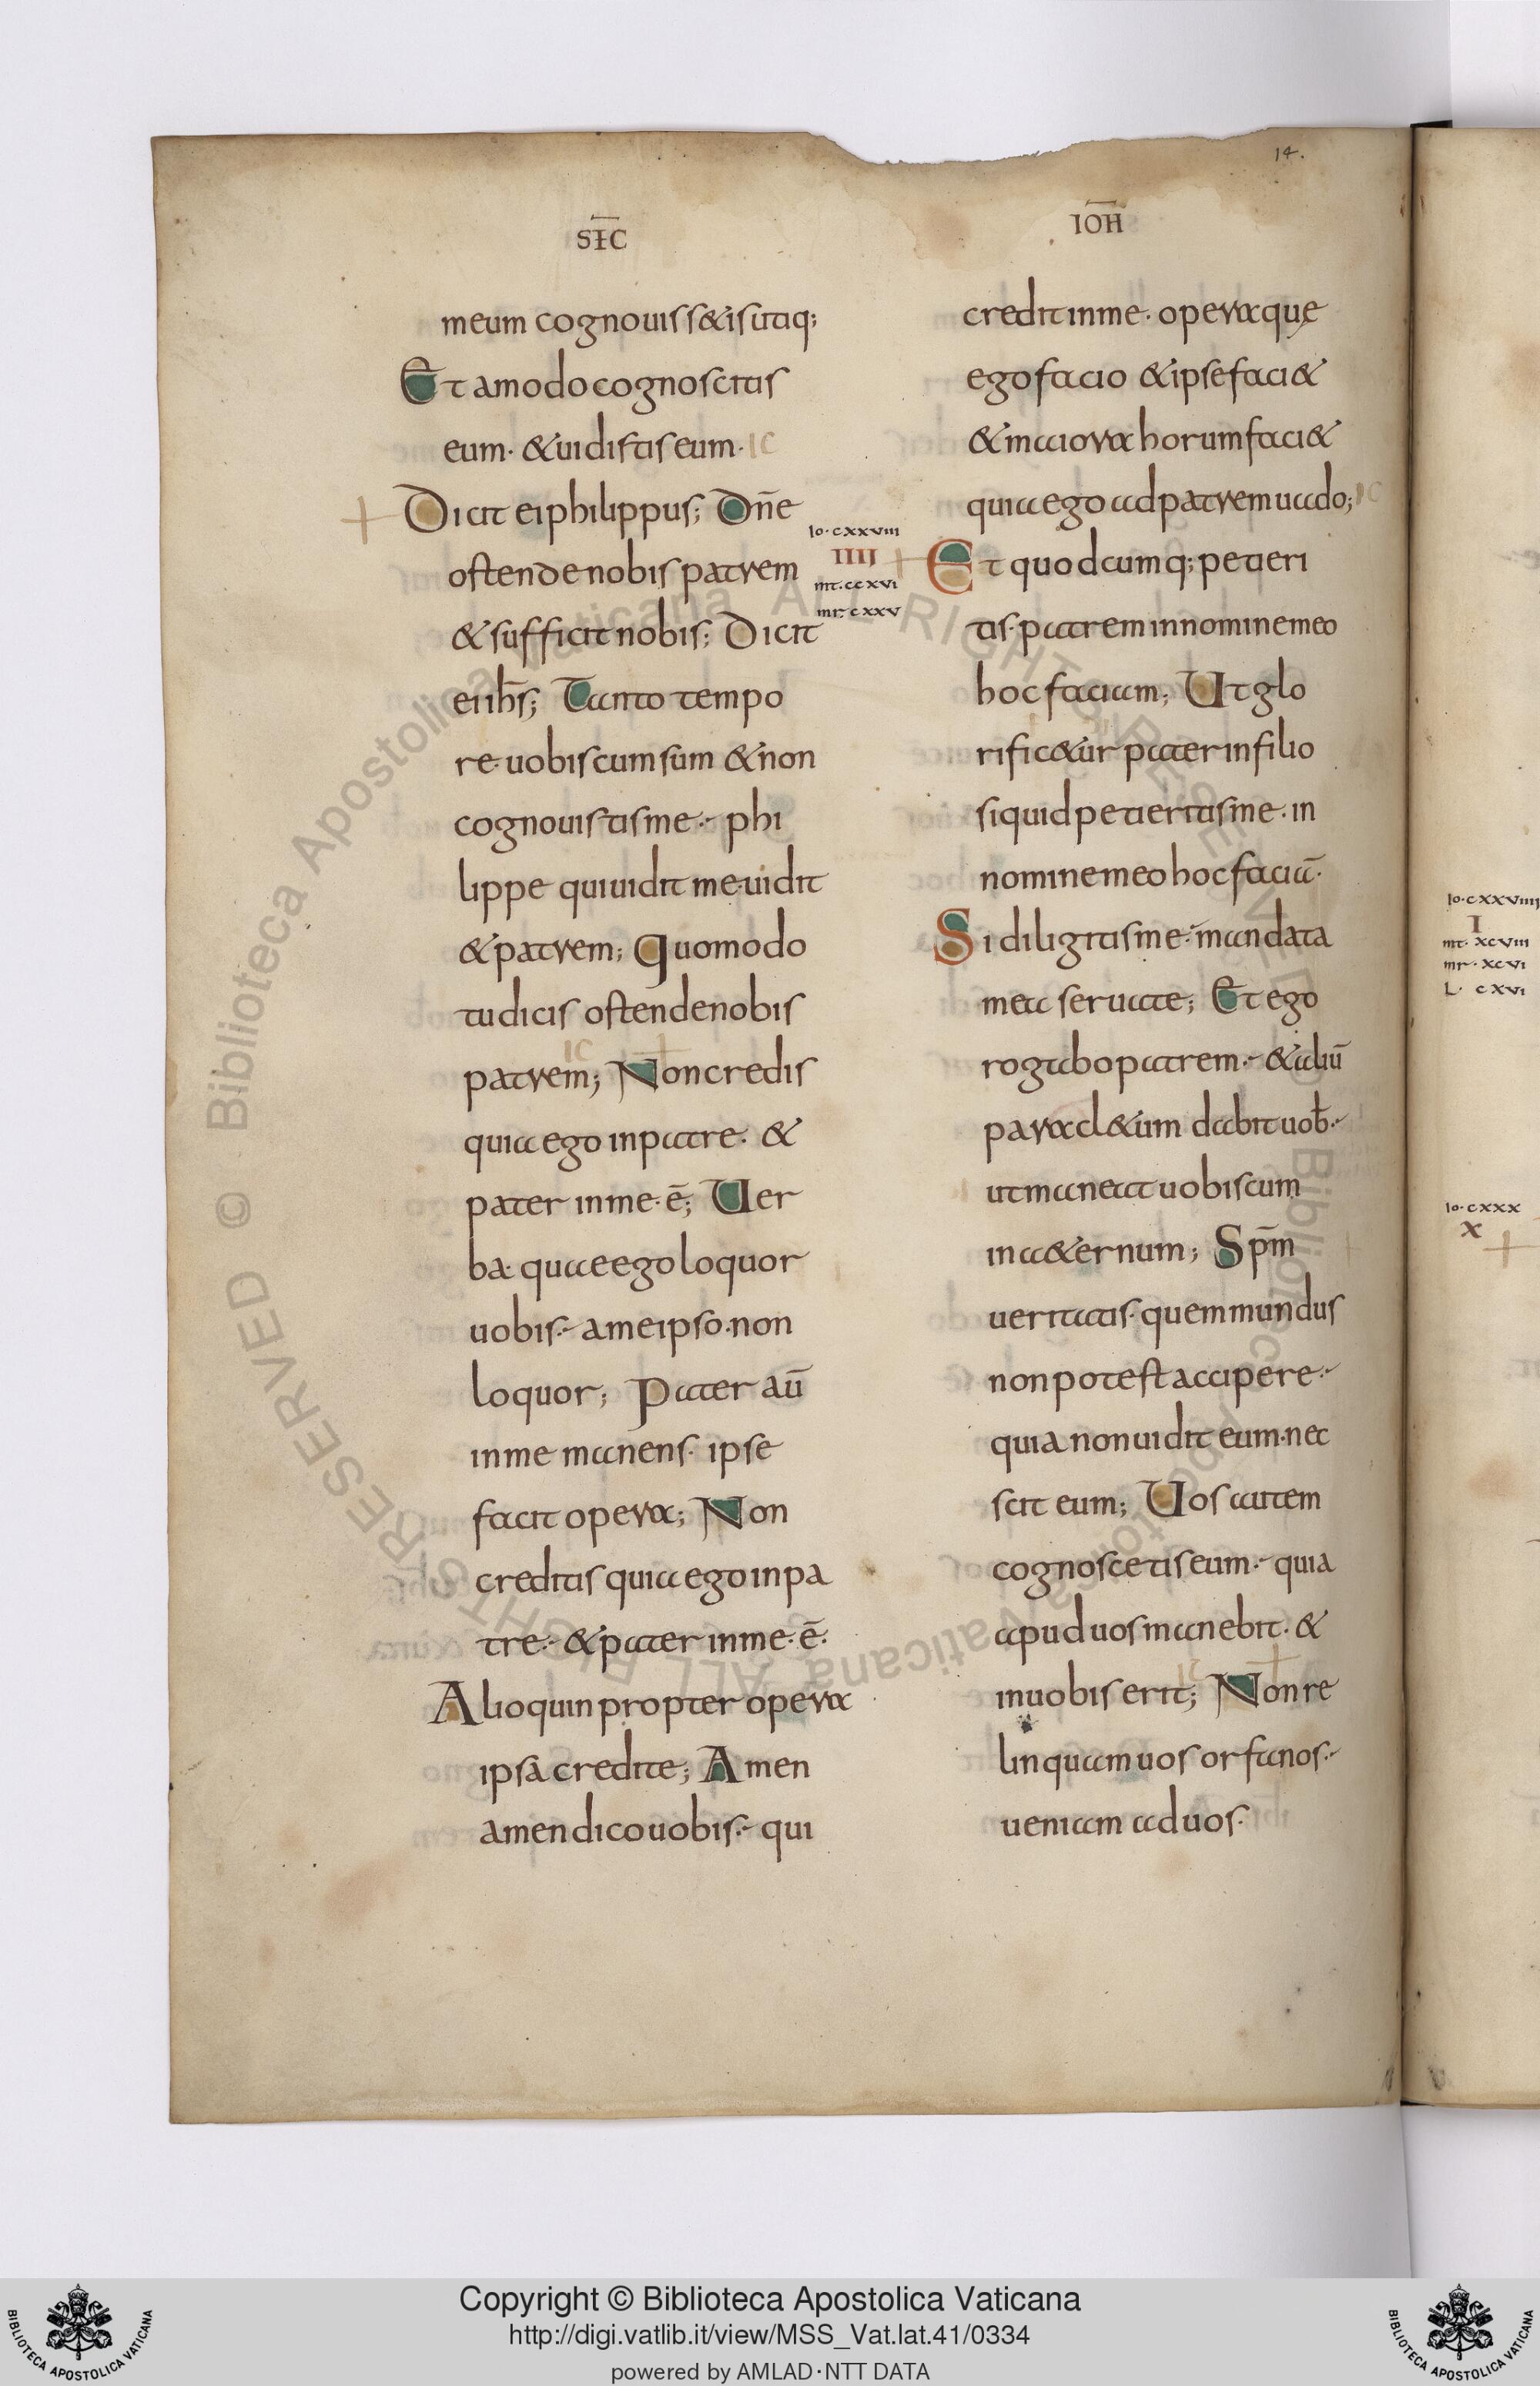 14.
SĒC
IOH̄
meum cognouiss&isutiq;
Et amodo cognoscitis
eum· &uidistis eum· IC
Dicit ei philippus; Dn̄e
ostende nobis patrem
& sufficit nobis; Dicit
ei ih̄s; Tanto tempo
re· uobiscum sum & non
cognouistis me·- phi
lippe qui uidit me· uidit
& patrem; Quomodo
tu dicis ostende nobis
IC
patrem; Non credis
quia ego in patre· &
pater in me· ē; Uer
ba· quae ego loquor
uobis·- a me ipso· non
loquor; Pater aū
in me manens· ipse
facit opera; Non
creditis quia ego in pa
tre·- & pater in me· ē·
Alioquin propter opera
ipsa credite; Amen
amen dico uobis·- qui
Io· cxxviii
IIII
mt· ccxvi
mr· cxxv
credit in me· opera quę
ego facio & ipse faci&
& maiora horum faci&
quia ego ad patrem uado; IC
Et quodcumq; petieri
tis· patrem in nomine meo
hoc faciam; Ut glo
rific&ur pater in filio
si quid petieritis me· in
nomine meo hoc faciā·
Si diligitis me·- mandata
mea seruate; Et ego
rogabo patrem·- & aliū
paracl&um dabit uob̄·-
ut maneat uobiscum
in a&ernum; Sp̄m
ueritatis· quem mundus
non potest accipere·-
quia non uidit eum· nec
scit eum; Uos autem
cognoscetis eum·- quia
apud uos manebit· &
IC
in uobis erit; Non re
linquam uos orfanos·-
ueniam ad uos·
Io· cxxviiii
I
mt· xcviii
mr· xcvi
L· cxvi
Io· cxxx
X
© Biblioteca Apostolica Vaticana ALL RIGHTS RESERVED
Copyright © Biblioteca Apostolica Vaticana
http://digi.vatlib.it/view/MSS_Vat.lat.41/0334
powered by AMLAD·NTT DATA
BIBLIOTECA APOSTOLICA VATICANA
BIBLIOTECA APOSTOLICA VATICANA